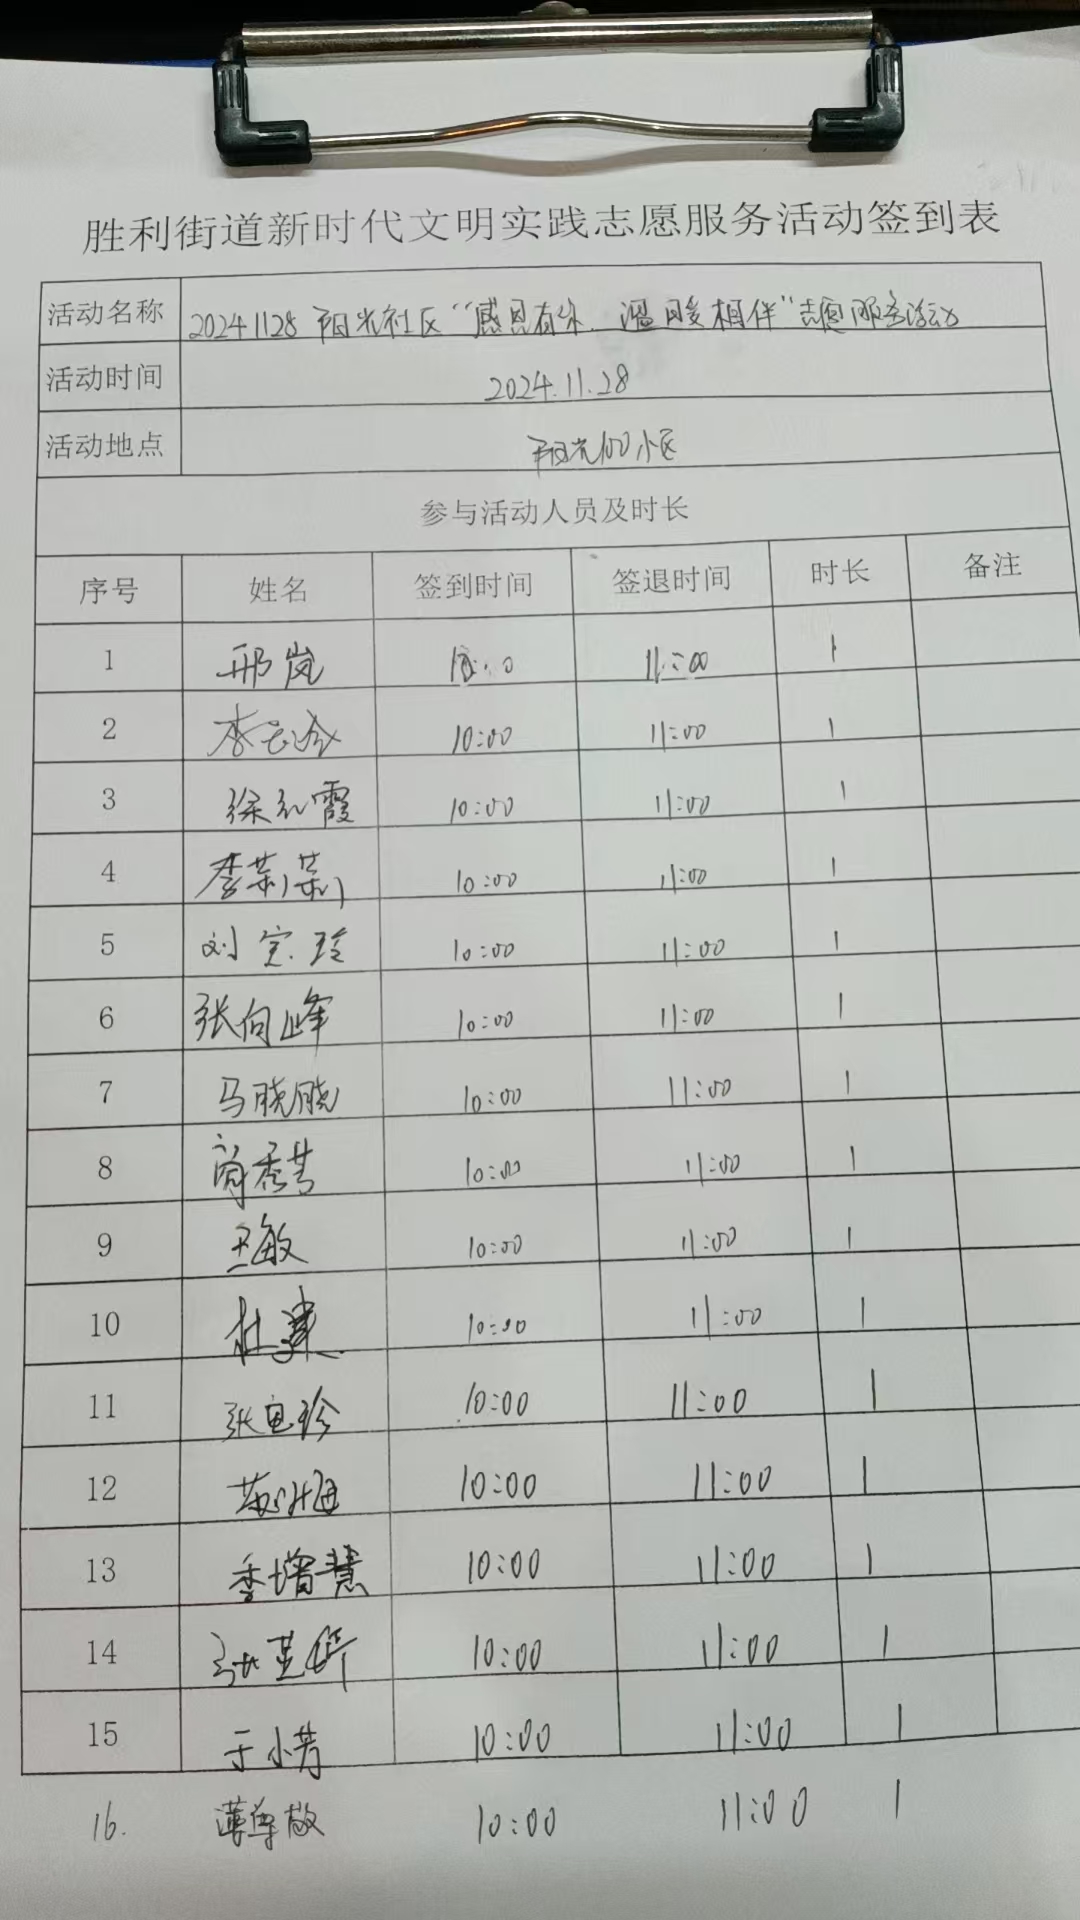 胜利街道新时代文明实践志愿服务活动签到表
活动名称 20241128 阳光社区“感恩有你、温暖相伴”志愿服务活动
活动时间 2024.11.28
活动地点 阳光100小区
参与活动人员及时长
序号 姓名 签到时间 签退时间 时长 备注
1 邢岚 11:00 1
2 李 10:00 11:00 1
3 徐红霞 10:00 11:00 1
4 李莉莉 10:00 11:00 1
5 刘宝玲 10:00 11:00 1
6 张向峰 10:00 11:00 1
7 马晓晓 10:00 11:00 1
8 10:00 11:00 1
9 王敏 10:00 11:00 1
10 杜 10:00 11:00 1
11 张 珍 10:00 11:00 1
12 10:00 11:00 1
13 季增慧 10:00 11:00 1
14 张 10:00 11:00 1
15 于小芳 10:00 11:00 1
16. 薄尊敬 10:00 11:00 1